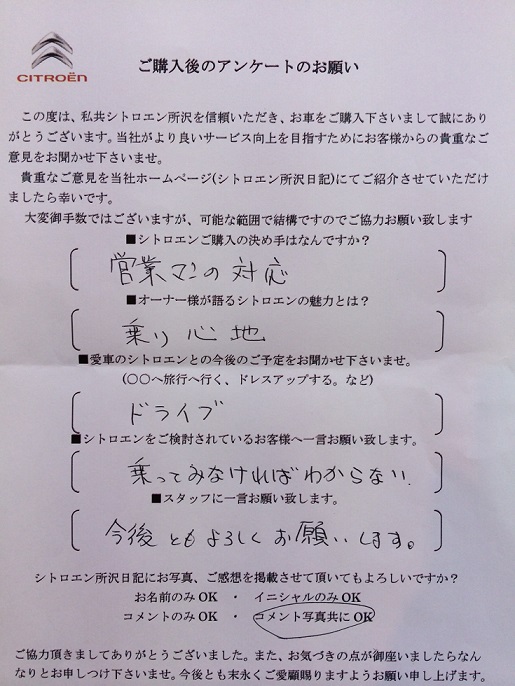 CITROËN
ご購入後のアンケートのお願い
この度は、私共シトロエン所沢を信頼いただき、お車をご購入下さいまして誠にあり
がとうございます。当社がより良いサービス向上を目指すためにお客様からの貴重なご
意見をお聞かせ下さいませ。
貴重なご意見を当社ホームページ(シトロエン所沢日記)にてご紹介させていただけ
ましたら幸いです。
大変御手数ではございますが、可能な範囲で結構ですのでご協力お願い致します
■シトロエンご購入の決め手はなんですか？
営業マンの対応
■オーナー様が語るシトロエンの魅力とは？
乗り心地
■愛車のシトロエンとの今後のご予定をお聞かせ下さいませ。
(〇〇へ旅行へ行く、ドレスアップする。など)
ドライブ
■シトロエンをご検討されているお客様へ一言お願い致します。
乗ってみなければわからない.
■スタッフに一言お願い致します。
今後ともよろしくお願いします。
シトロエン所沢日記にお写真、ご感想を掲載させて頂いてもよろしいですか？
お名前のみ OK ・ イニシャルのみ OK
コメントのみ OK ・ コメント写真共に OK
ご協力頂きましてありがとうございました。また、お気づきの点が御座いましたらなん
なりとお申しつけ下さいませ。今後とも末永くご愛顧賜りますようお願い申し上げます。